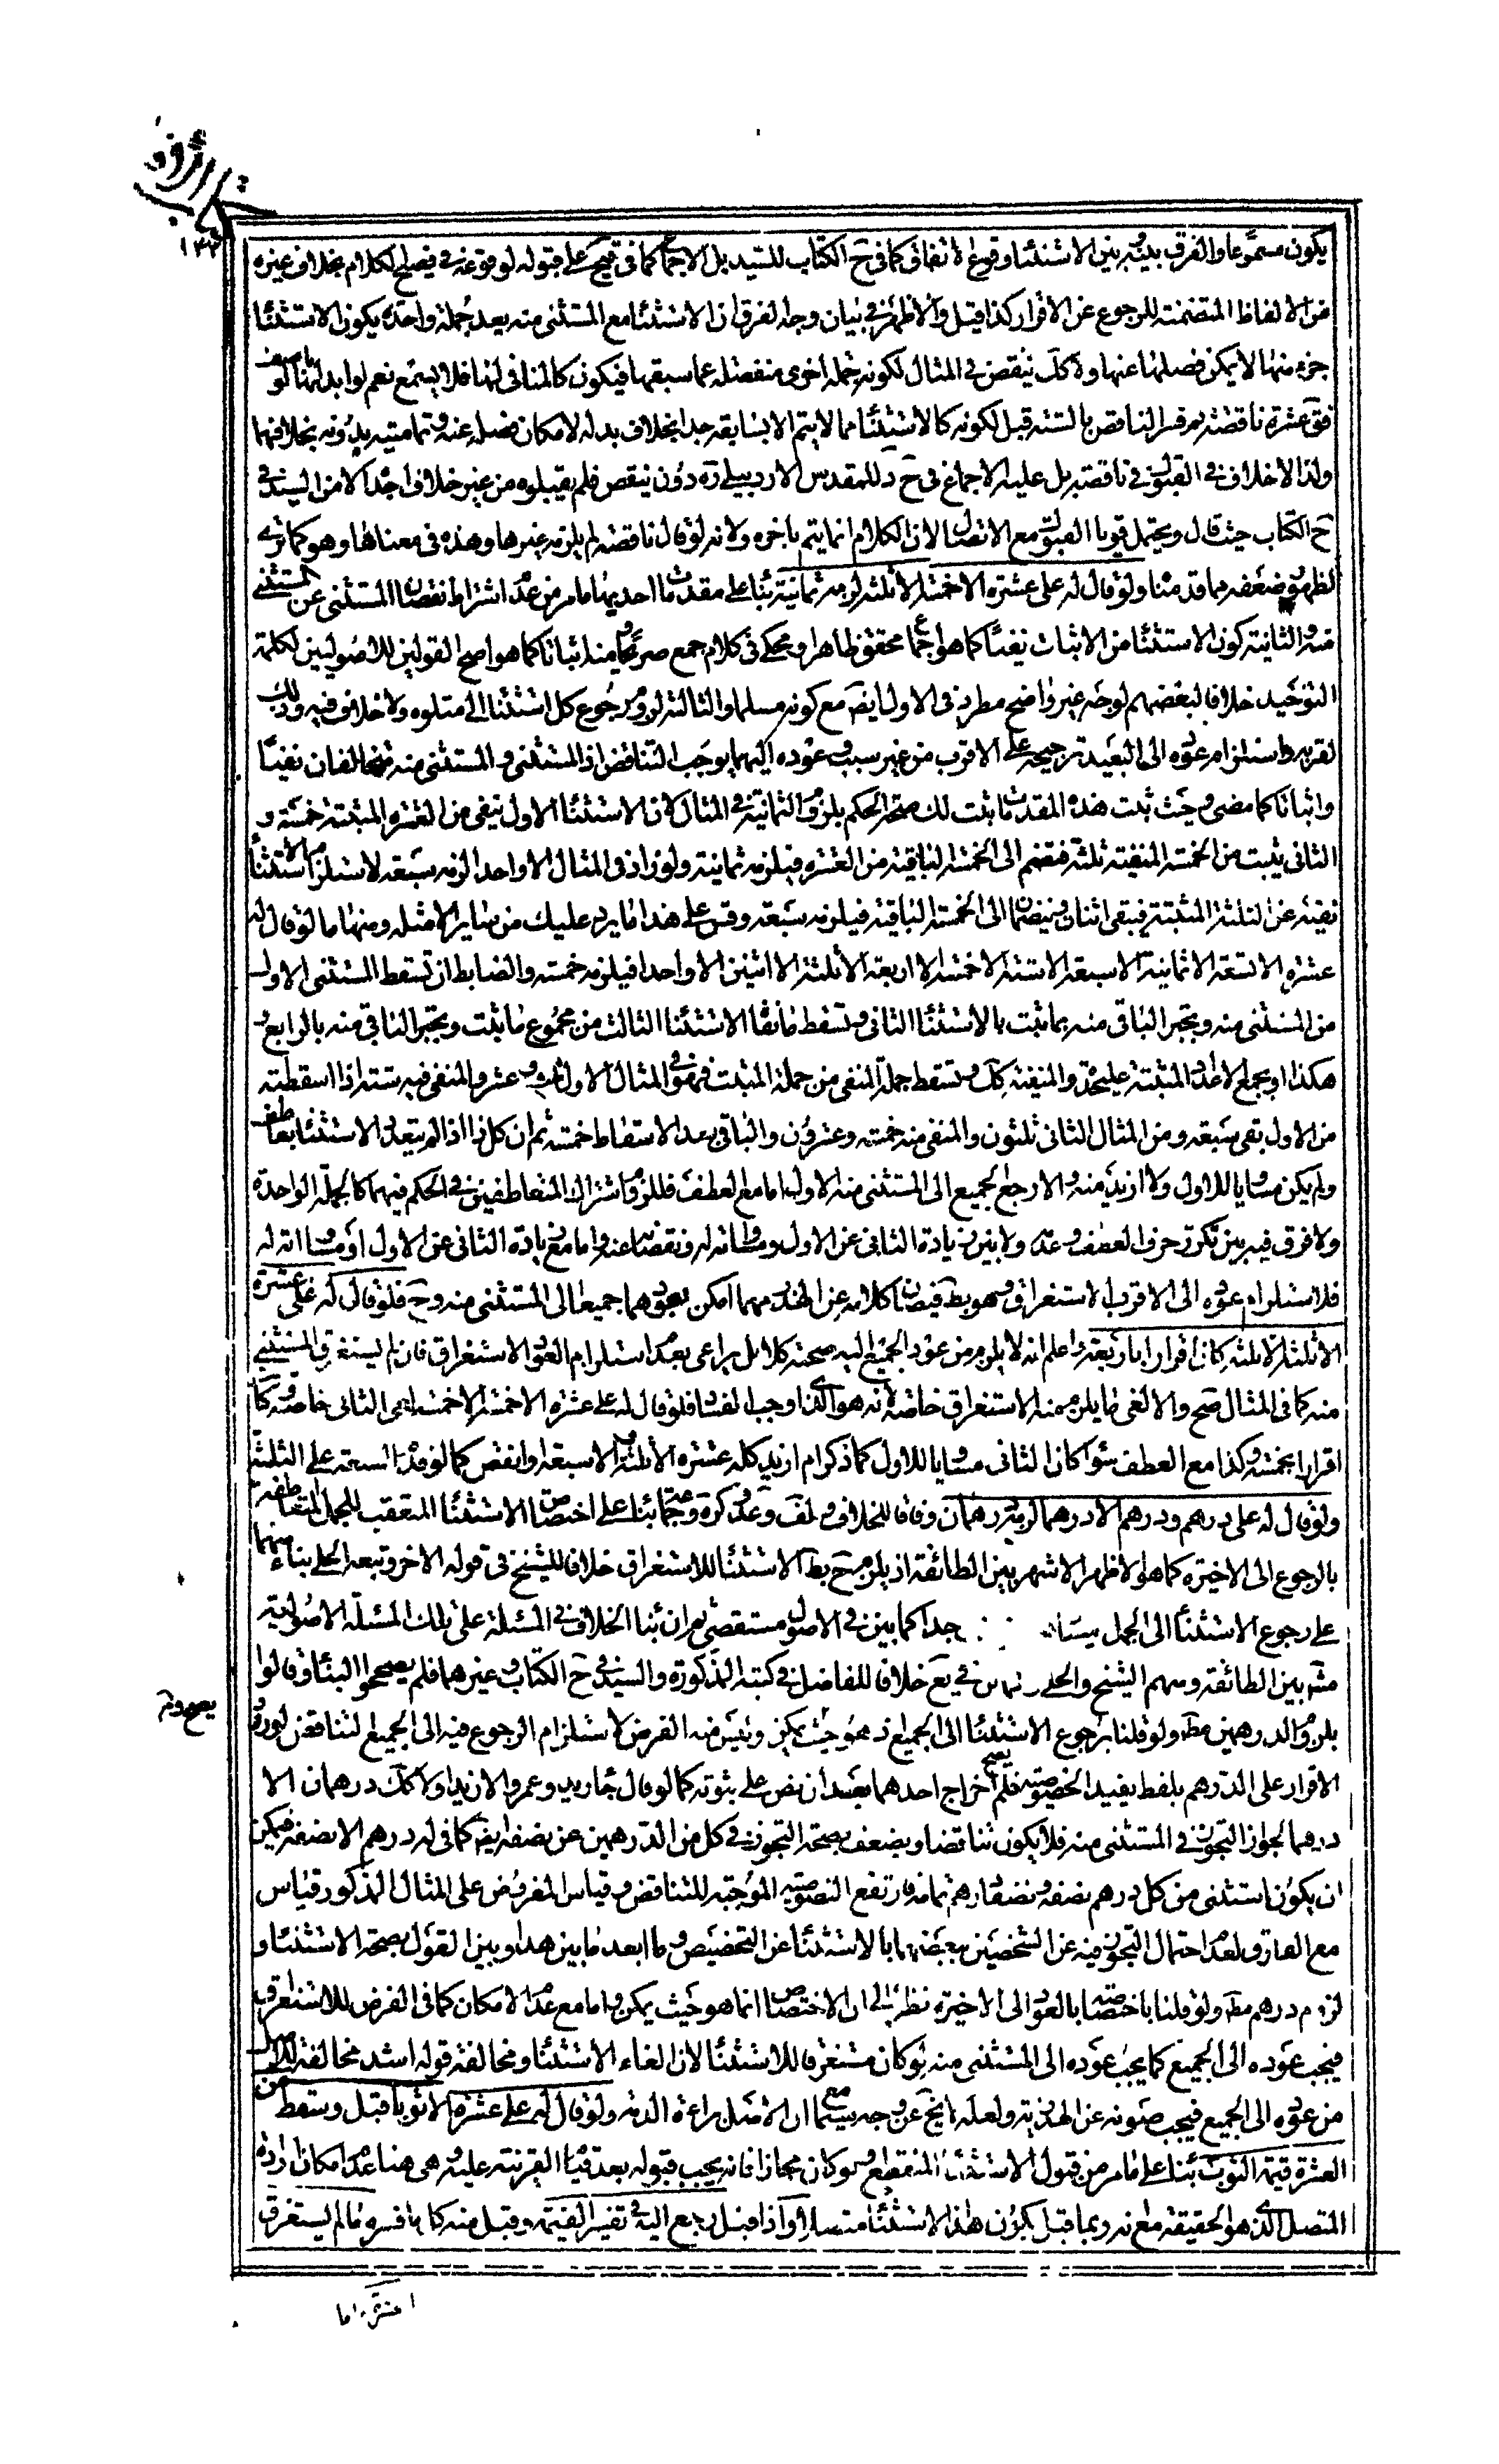 كتاب الاقرار
١٣٣
يكون مسموعا والفرق بينه وبين الاستثناء وقوع الاتفاق كما فى ح الكتاب للسيد بل الاجماع كما فى قبح على قبوله لوقوعه فى فصيح الكلام بخلاف غيره
من الالفاظ المتضمنة للرجوع عن الاقرار كذا قيل والاظهر فى بيان وجه الفرق ان الاستثناء مع المستثنى منه يعد جملة واحدة يكون الاستثناء
جزء منها لا يمكن فصلها عنها ولا كك ينقص فى المثال لكونه جملة اخرى منفصلة عما سبقها فيكون كالمنافى لها فلا يسمع نعم لو ابدلها بالوصف
فق عشرة ناقصة ثم فسر الناقص بالستة قبل لكونه كالاستثناء مما لا يتم الا بسابقه جدا بخلاف بدله لامكان فصله عنه وتماميته بدونه بخلافهما
ولذا لا خلاف فى القبول فى ناقصة بل عليه الاجماع فى ح د للمقدس الاردبيلى ره دون ينقص فلم يقبلوه من غير خلاف اجده الا من السيد فى
ح الكتاب حيث قال ويحتمل قويا القبول مع الاتصال لان الكلام انما يتم باخره ولانه لو قال ناقصة لم يلزمه غيرها وهذه فى معناها وهو كما ترى
لظهور ضعفه مما قدمنا ولو قال له على عشرة الا خمسة الا ثلثة لزمه ثمانية بناء على مقدمات احديها ما مر من عدم اشتراط نقصان المستثنى عن المستثنى
منه والثانية كون الاستثناء من الاثبات نفيا كما هو اجماع محقق ظاهر ومحكى فى كلام جمع صريحا ومنه اثباتا كما هو اصح القولين للاصوليين لكلمة
التوحيد خلافا لبعضهم لوجه غير واضح مطرد فى الاول ايض مع كونه مسلما والثالثة لزوم رجوع كل استثناء الى متلوه ولا خلاف فيه وذلك
لقربه واستلزام عوده الى البعيد ترجيحه على الاقرب من غير سبب وعوده اليهما يوجب التناقض اذ المستثنى والمستثنى منه متخالفان نفيا
واثباتا كما مضى وحيث ثبت هذه المقدمات ثبت لك صحة الحكم بلزوم الثمانية فى المثال لان الاستثناء الاول ينفى من العشرة المثبتة خمسة و
الثانى يثبت من الخمسة المنفية ثلثة فتضم الى الخمسة الباقية من العشرة فيلزمه ثمانية ولو زاد فى المثال الا واحدا لزمه سبعة لاستلزام الاستثناء
نفيه عن الثلثة المثبتة فيبقى اثنان وينضمان الى الخمسة الباقية فيلزمه سبعة وقس على هذا ما يرد عليك من ساير الامثلة ومنها ما لو قال له
عشرة الا تسعة الا ثمانية الا سبعة الا ستة الا خمسة الا اربعة الا ثلثة الا اثنين الا واحدا فيلزمه خمسة والضابط ان تسقط المستثنى الاول
من المستثنى منه ويجبر الباقى منه بما يثبت بالاستثناء الثانى وتسقط ما نفاه الاستثناء الثالث من مجموع ما ثبت ويجبر الباقى منه بالرابع و
هكذا او يجمع الاعداد المثبتة عليحدة والمنفية كك وتسقط جملة المنفى من جملة المثبت فهو فى المثال الاول ثلثة عشر والمنفى فيه ستة اذا اسقطته
من الاول بقى سبعة ومن المثال الثانى ثلثون والمنفى منه خمسة وعشرون والباقى بعد الاسقاط خمسة ثم ان كل ذا اذا لم يتعدد الاستثناء بعاطف
ولم يكن مساويا للاول ولا ازيد منه والا رجع الجميع الى المستثنى منه الاول اما مع العطف فللزوم اشتراك المتعاطفين فى الحكم فيهما كالجملة الواحدة
ولا فرق فيه بين تكرر حرف العطف وعدمه ولا بين زيادة الثانى عن الاول ومساواته له ونقصانه عنه واما مع زيادة الثانى عن الاول او مساواته له
فلاستلزام عوده الى الاقرب الاستغراق وهو بط فيصان كلامه عن الهذر مهما امكن بعودهما جميعا الى المستثنى منه وح فلو قال له على عشرة
الا ثلثة الا ثلثة كان اقرارا باربعة واعلم انه لا يلزم من عود الجميع اليه صحة كلا بل يراعى بعد استلزام العود الاستغراق فان لم يستغرق المستثنى
منه كما فى المثال صح والا الغى ما يلزم منه الاستغراق خاصة لانه هو الذى اوجب الفساد فلو قال له على عشرة الا خمسة الا خمسة الغى الثانى خاصة وكان
اقرارا بخمسة وكذا مع العطف سواء كان الثانى مساويا للاول كما ذكر ام ازيد كله عشرة الا ثلثة والا سبعة او انقص كما لو قدم السبعة على الثلثة
ولو قال له على درهم ودرهم الا درهما لزمه درهمان وفاقا للخلاف ولف وعد وكرة وجماعة بناء على اختصاص الاستثناء المتعقب للجمل المتعاطفة
بالرجوع الى الاخيرة كما هو الاظهر الاشهر بين الطائفة اذ يلزم ح بط الاستثناء للاستغراق خلافا للشيخ فى قوله الاخر وتبعه الحلى بناء منهما
على رجوع الاستثناء الى الجمل جدا كما بين فى الاصول مستقصى ثم ان بناء الخلاف فى المسئلة على تلك المسئلة الاصولية
مشهور بين الطائفة ومنهم الشيخ والحلى فى يع خلافا للفاضل فى كتبه المذكورة والسيد فى ح الكتاب وغيرهما فلم يصححوا البناء وقالوا
بلزوم الدرهمين مط ولو قلنا برجوع الاستثناء الى الجميع اذ هو حيث يمكن وليس منه الفرض لاستلزام الرجوع فيه الى الجميع التناقض لورود
الاقرار على الدرهم بلفظ يفيد الخصوصية فلم يصح اخراج احدهما بعد ان نص على ثبوته كما لو قال جاء زيد وعمرو الا زيدا ولا كك درهمان الا
درهما لجواز التجوز فى المستثنى منه فلا يكون تناقضا ويضعف بصحة التجوز فى كل من الدرهمين عن نصفه ايض كما فى له درهم الا نصفه فيمكن
ان يكون استثنى من كل درهم نصفه ونصفا درهم تمامه فارتفع النصوصية الموجبة للتناقض وقياس المفروض على المثال المذكور قياس
مع الفارق لعدم احتمال التجوز فيه عن الشخصين ببعضهما بالاستثناء عن التخصيص وما ابعد ما بين هذا وبين القول بصحة الاستثناء و
لزوم درهم مط ولو قلنا باختصاصه بالعود الى الاخيرة نظرا الى ان الاختصاص انما هو حيث يمكن واما مع عدم الامكان كما فى الفرض للاستغراق
فيجب عوده الى الجميع كما يجب عوده الى المستثنى منه لو كان مستغرقا للاستثناء لان الغاء الاستثناء ومخالفة قوله اشد مخالفة للاصل
من عوده الى الجميع فيجب صونه عن الهذرية ولعله لا يخ عن وجه سيما مع ان الاصل براءة الذمة ولو قال له على عشرة الا ثوبا قبل وسقط من
العشرة قيمة الثوب بناء على ما مر من قبول الاستثناء المنقطع ولو كان مجازا فانه يجب قبوله بعد قيام القرينة عليه وهى هنا عدم امكان ارادة
المتصل الذى هو الحقيقة معه وبما قبل يكون هذا الاستثناء متصلا واذا قبل رجع اليه فى تفسير القيمة وقبل منه كل ما فسره ما لم يستغرق
يصح ومنه
العشرة اما